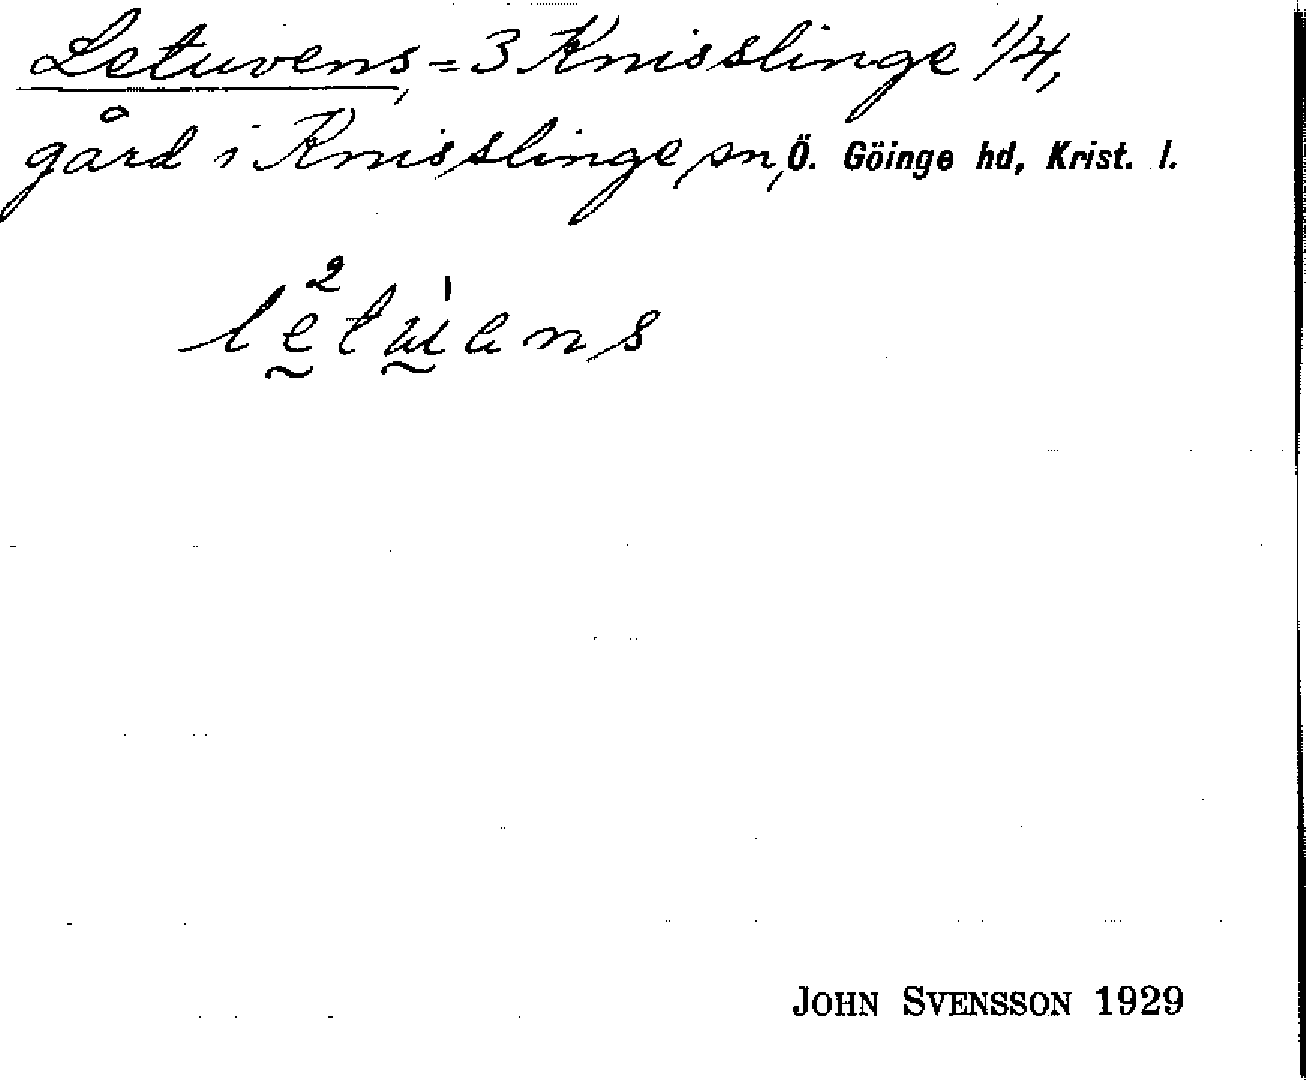 Letuvens, = 3 Knisslinge 1/4,
gård i Knisslinge sn, Ö. Göinge hd, Krist. l.
JOHN SVENSSON 1929